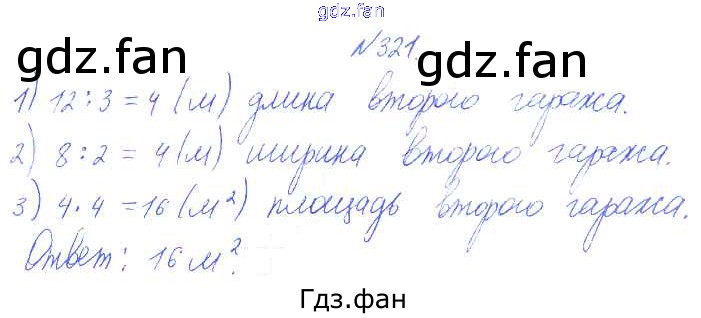 gdz.fan
gdz.fan gdz.fan
№321.
1) 12:3=4 (м) длина второго гаража.
2) 8:2=4 (м) ширина второго гаража.
3) 4·4=16 (м²) площадь второго гаража.
Ответ: 16 м².
Гдз.фан